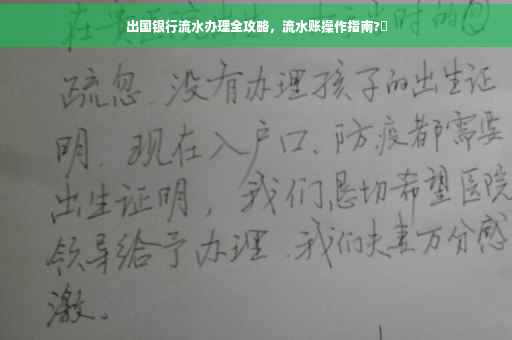 出国银行流水办理全攻略，流水账操作指南?
疏忽.没有办理孩子的出生证
明.现在入户口、防疫都需要
出生证明，我们恳切希望医院
领导给予办理.我们夫妻万分感
激。